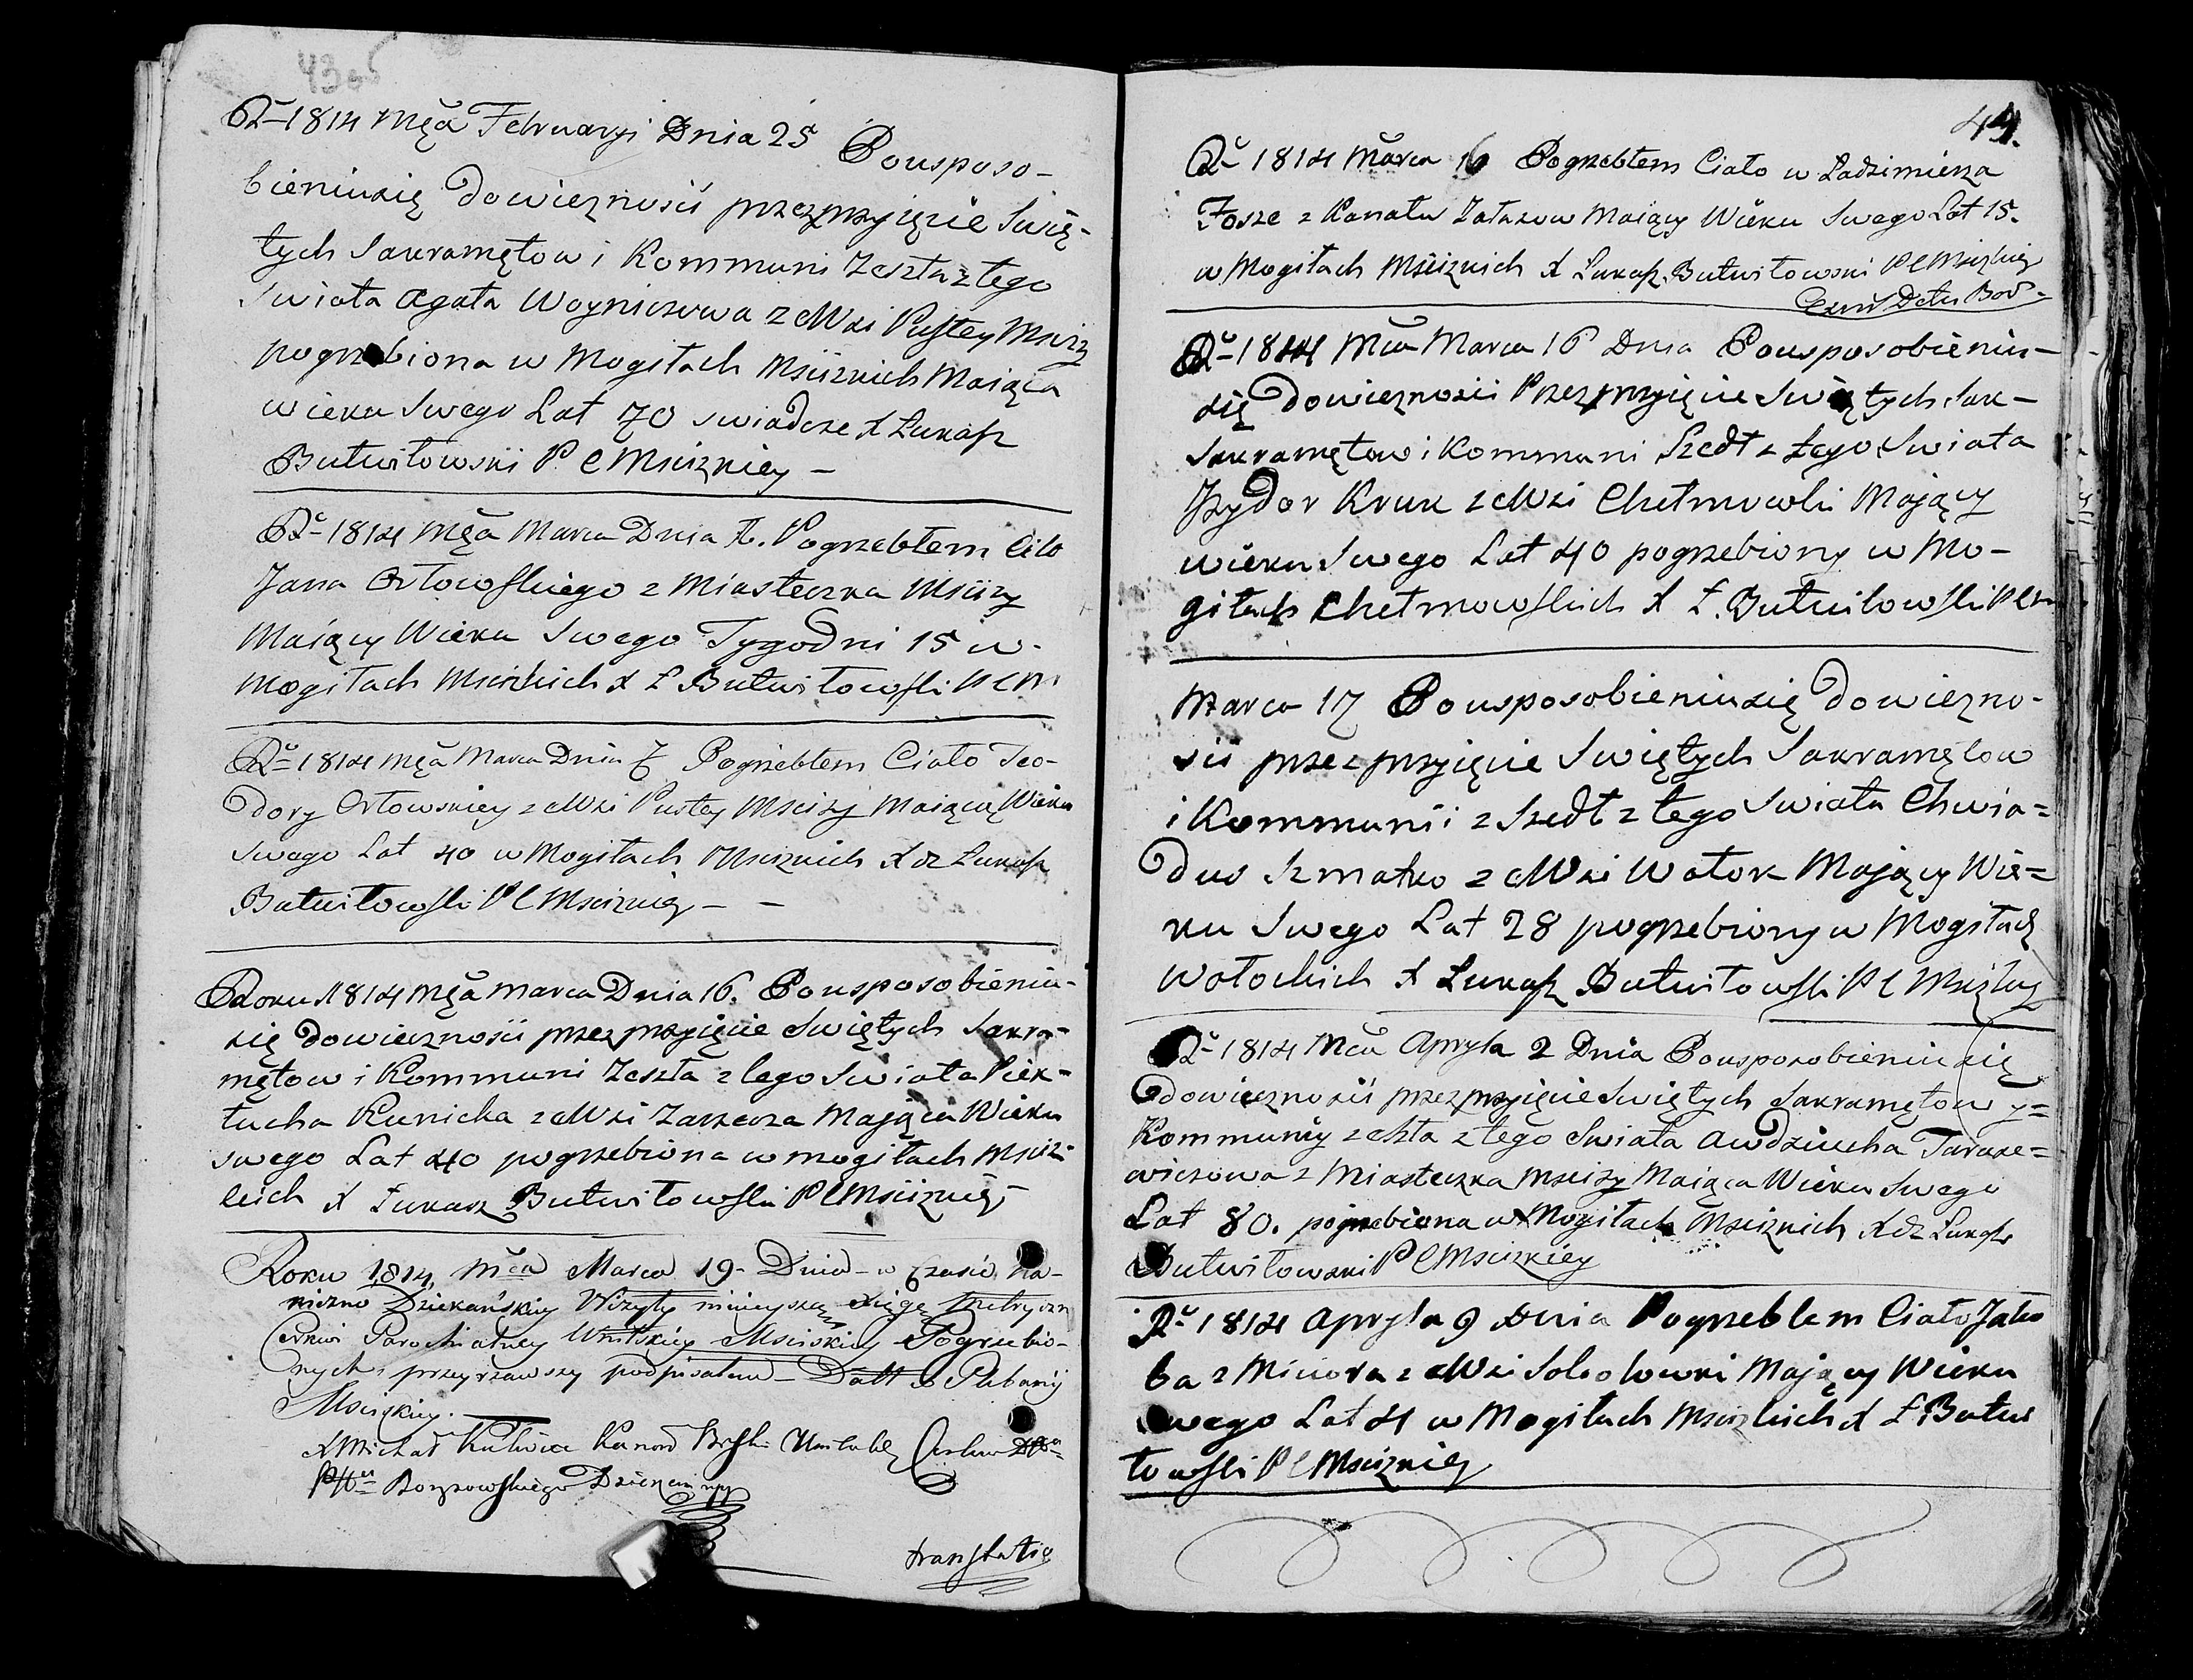 43
R 1814 Mca Februaryi Dnia 25 Pousposo-
bieniusię dowieznosii przezprzyięcie Swię-
tych Sakramętow i Kommuni Zeszta z tego
Swiata Agata Woyniczowa z eWsi Pustey Msciz
pogrzebiona w Mogiłach Msciznich Maiąca
wieku Swego Lat 70 swiadcze X Łukasz
Butwiłowski P C Mscizkiey -
R 1814 Męa Marca Dnia Pogrzebłem Ciło
Jana Orłowskiego z Miasteczka Mscizy
Maiący Wieku Swego Tygodni 15 w
Mogiłach Mscizkich X Ł Butwiłowski P C M
R 1814 Męa Marca Dnia 7 Pogrzebłem Ciało Teo-
dory Orłowskiey z eWsi Pustey Mscizy Maiącą Wieku
Swego Lat 40 w Mogiłach Msciznich Xdz Łukasz
Butwiłowski P C Msciznie - -
Roku 1814 Męa Marca Dnia 16. Pousposobieniu-
się dowiecznosii przezprzyięcie Swiętych Sakra-
mętow i Kommuni Zeszła z tego Swiata Piek-
łucha Kunicka z eWsi Zarzecza Maiąca Wieku
swego Lat 40 pogrzebiona w mogiłach Msciz-
kich X Łukasz Butwiłowski P C Msciznie
Roku 1814 Mca Marca 19 Dnia w Czasie Ka-
niczno Dziekańskiey Wizyty ninieyszą Xięgę Metryczn
Cerkwi Parochialney Unitskiey Mscizkiey Pogrzebio-
nych przeyrzawszy podpisałem - Datt w Plebanij
Mscizkiey.
X Michał Kanon
Borysowskiego Dziekan
translatio
44.
R 1814 Marca 16 Pogrzebłem Ciało w Ładzimierza
Fosze z Kanału Załazow Maiący Wieku Swego Lat 15.
w Mogiłach Msciznich X Łukasz Butwiłowski P C Mscizkiey
R 1814 Mca Marca 16 Dnia Pousposobieniu-
się dowieznosii Przezprzyięcie Swiętych Sak-
Sakramętow i Kommuni Szedł z tego Swiata
Jzydor Kruk z eWsi Chełmowki Mający
wieku Swego Lat 40 pogrzebiony w Mo-
giłach Chełmowskich X Ł. Butwiłowski P C M
Marca 17 Pousposobieniusię dowiezno-
sii przezprzyięcie Swiętych Sakramętow
i Kommunii z Szedł z tego Swiata Chwia=
dus Szmatko z eWsi Wołok Mający Wie=
ku Swego Lat 28 pogrzebiony w Mogiłach
Wołockich X Łukasz Butwiłowski P C Mscizkiey
R 1814 Mca Apryla 2 Dnia Pousposobieniusię
dowiecznosii przezprzyięcie Swiętych Sakramętow y=
Kommuniy zeszła z tego Swiata Awdziucha Tarase=
wiczowa z Miasteczka Mscizy Maiąca Wieku Swego
Lat 80. pogrzebiona w Mogiłach Msciznich Xdz Łukasz
Butwiłowski P C Mscizkiey
R 1814 Apryla 9 Dnia Pogrzebłem Ciało Jako
ba z Minora z eWsi Sokołowki Mający Wieku
Swego Lat 4 w Mogiłach Mscizkich X Ł Butwi
łowski P C Msciznie